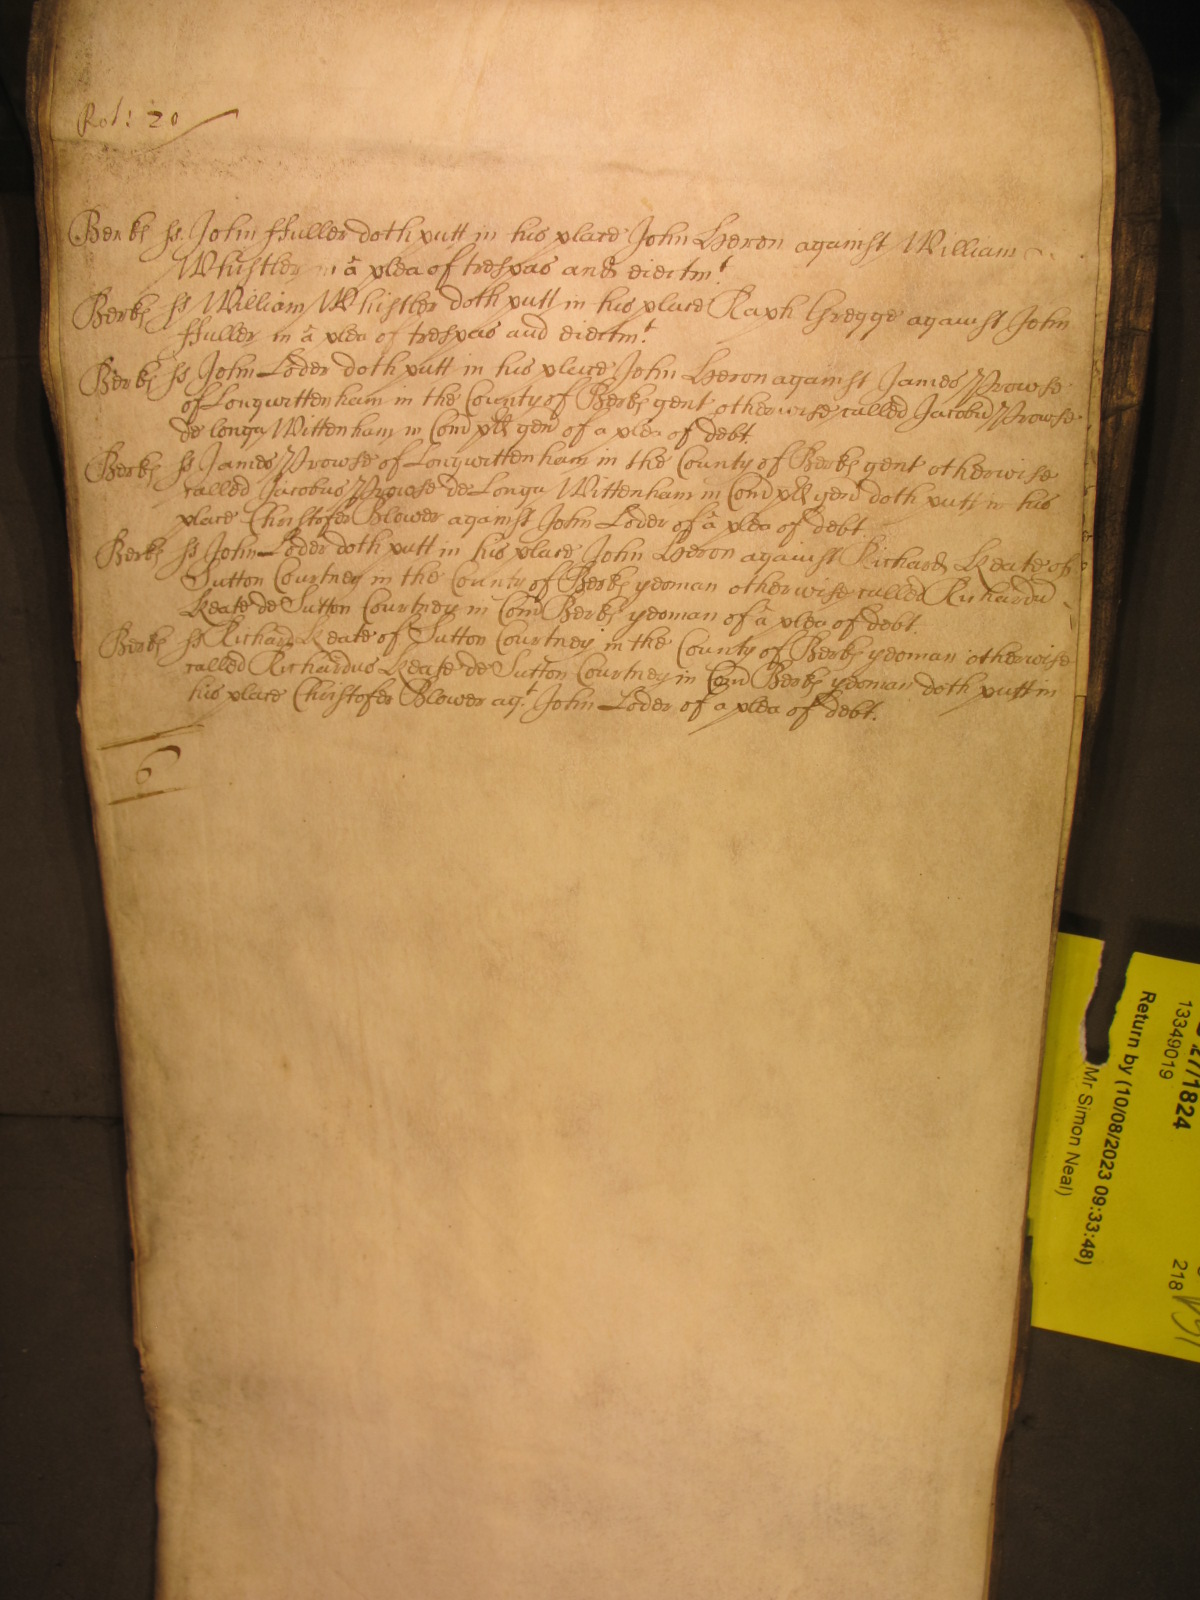 Rot: 20
Berks ss John ffuller doth putt in his place John Heron against William
Whistler in a plea of trespas and eiectmt
Berks ss William Whistler doth putt in his place Raph Gregge against John
ffuller in a plea of trespas and eiectmt
Berks ss John Loder doth putt in his place John Heron against James Prowse
of Longwittenham in the County of Berks gent otherwise called Jacobus Prowse
de Longa Wittenham in Com pd gen of a plea of debt
Berks ss James Prowse of Longwittenham in the County of Berks gent otherwise
called Jacobus Prowse de Longa Wittenham in Com pd gen doth putt in his
place Christofer Blower against John Loder of a plea of debt
Berks ss John Loder doth putt in his place John Heron against Richard Keate of
Sutton Courtney in the County of Berks yeoman otherwise called Richardu
Keate de Sutton Courtney in Com Berks yeoman of a plea of debt.
Berks ss Richard Keate of Sutton Courtney in the County of Berks yeoman otherwise
called Richardus Keate de Sutton Courtney in Com Berks yeoman doth putt in
his place Christofer Blower agt John Loder of a plea of debt.
6
27/1824
13349019
Return by (10/08/2023 09:33:48)
Mr Simon Neal)
218